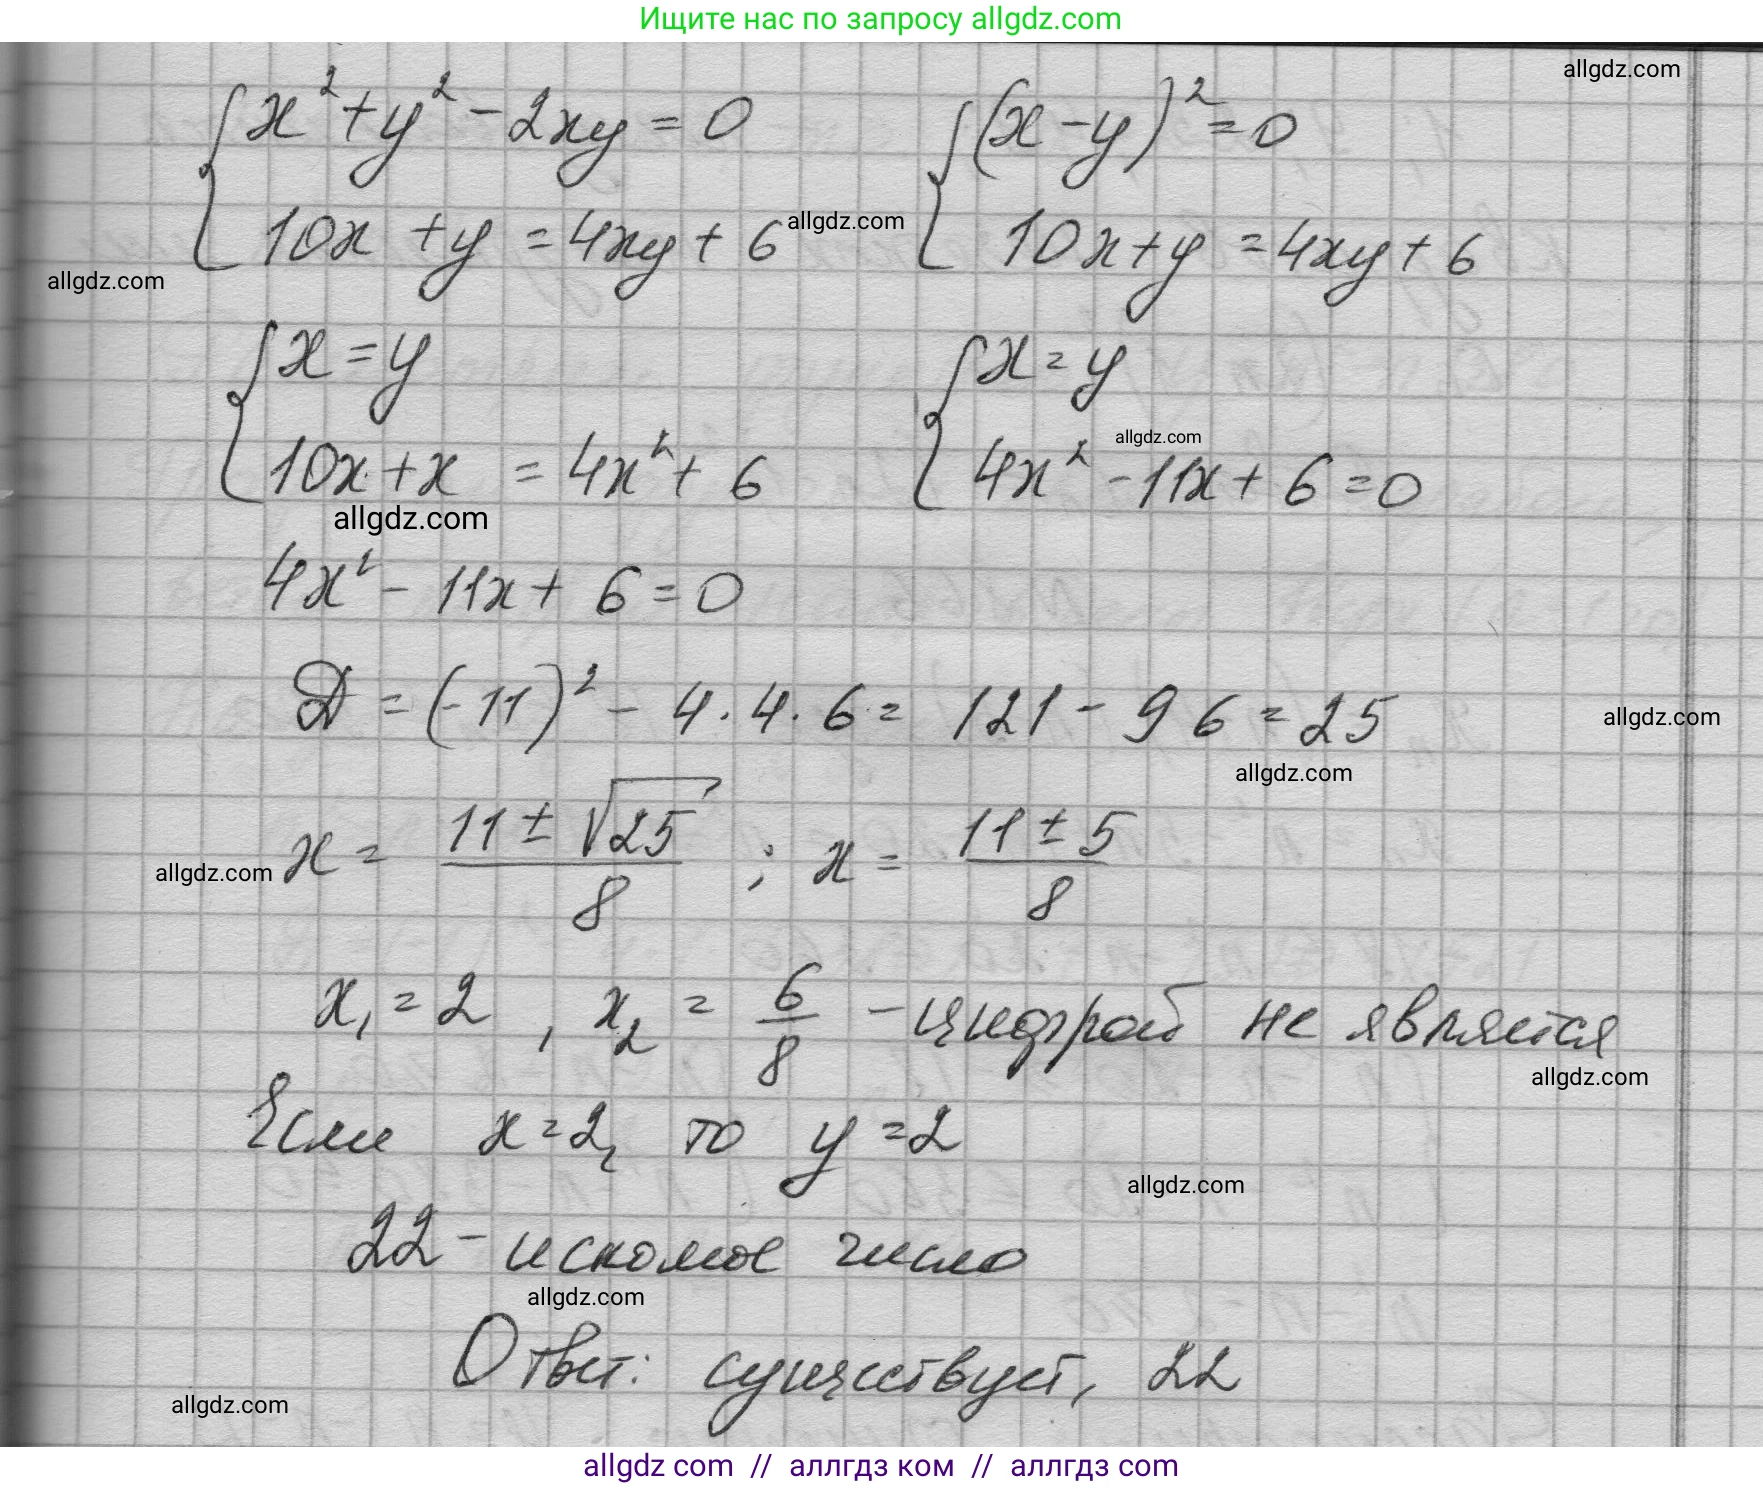 Ищите нас по запросу allgdz.com
allgdz.com
{ x² + y² - 2xy = 0 { (x - y)² = 0
{ 10x + y = 4xy + 6 allgdz.com { 10x + y = 4xy + 6
allgdz.com
{ x = y { x = y
allgdz.com
{ 10x + x = 4x² + 6 { 4x² - 11x + 6 = 0
allgdz.com
4x² - 11x + 6 = 0
Д = (-11)² - 4 · 4 · 6 = 121 - 96 = 25
allgdz.com
allgdz.com
allgdz.com x = (11 ± √25)/8 ; x = (11 ± 5)/8
x₁ = 2 , x₂ = 6/8 - цифрой не является
allgdz.com
Если x = 2, то y = 2
allgdz.com
22 - искомое число
allgdz.com
Ответ: существует, 22
allgdz.com
allgdz com // аллгдз ком // аллгдз com